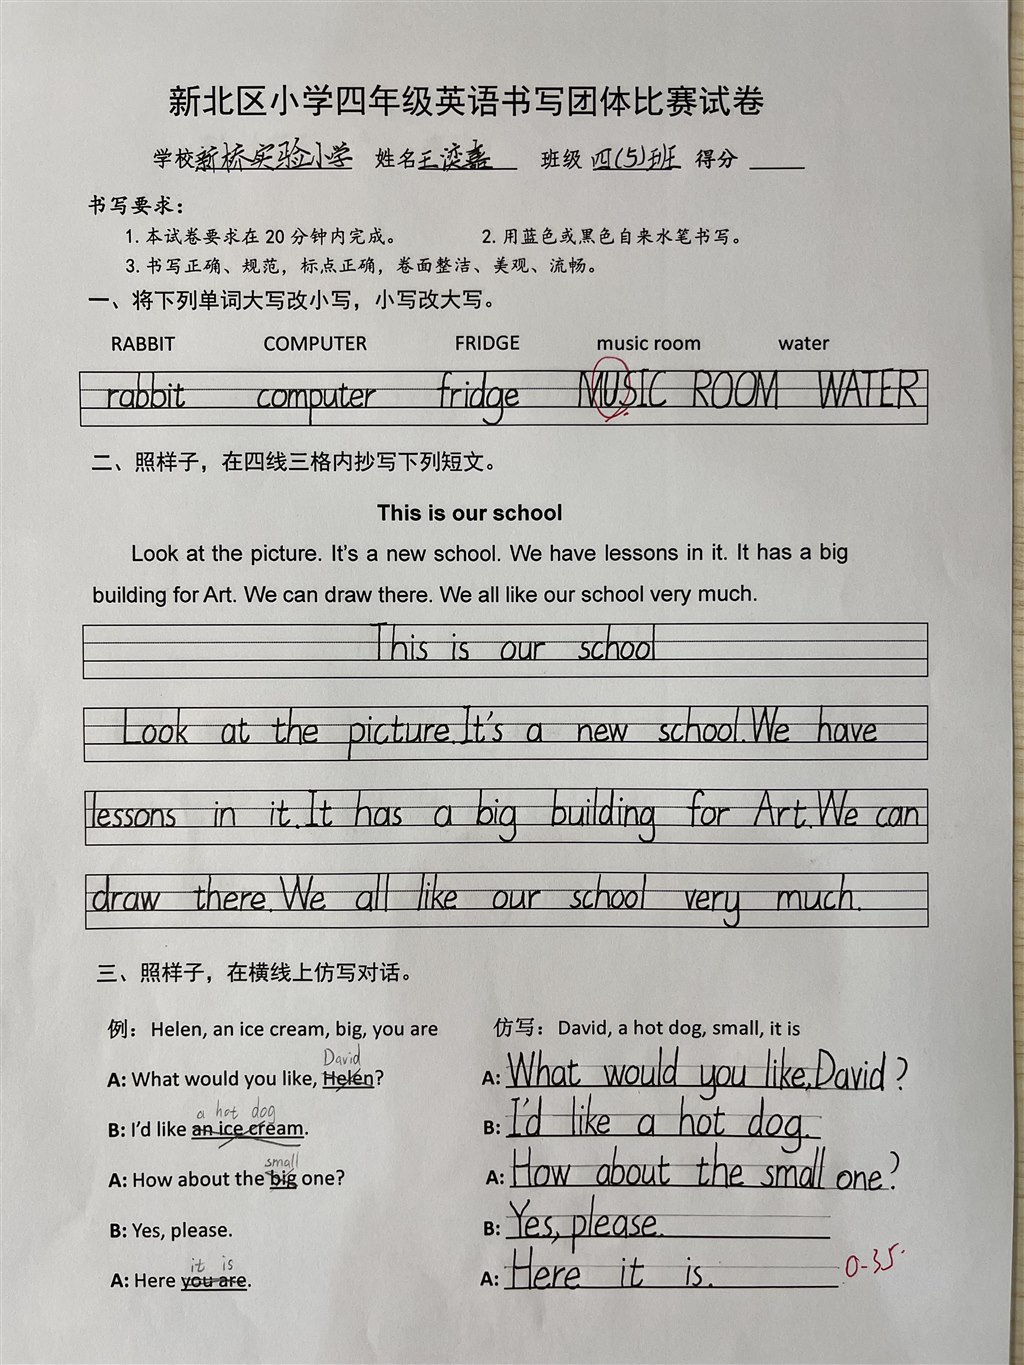 新北区小学四年级英语书写团体比赛试卷
学校新桥实验小学 姓名王 班级 四(5)班 得分
书写要求：
1. 本试卷要求在 20 分钟内完成。 2. 用蓝色或黑色自来水笔书写。
3. 书写正确、规范，标点正确，卷面整洁、美观、流畅。
一、将下列单词大写改小写，小写改大写。
RABBIT COMPUTER FRIDGE music room water
rabbit computer fridge MUSIC ROOM WATER
二、照样子，在四线三格内抄写下列短文。
This is our school
Look at the picture. It's a new school. We have lessons in it. It has a big
building for Art. We can draw there. We all like our school very much.
This is our school
Look at the picture.It's a new school.We have
lessons in it.It has a big building for Art.We can
draw there.We all like our school very much.
三、照样子，在横线上仿写对话。
例：Helen, an ice cream, big, you are 仿写：David, a hot dog, small, it is
David
A: What would you like, Helen? A: What would you like,David?
a hot dog
B: I'd like an ice cream. B: I'd like a hot dog.
small
A: How about the big one? A: How about the small one?
B: Yes, please. B: Yes, please.
it is
A: Here you are. A: Here it is. 0-35